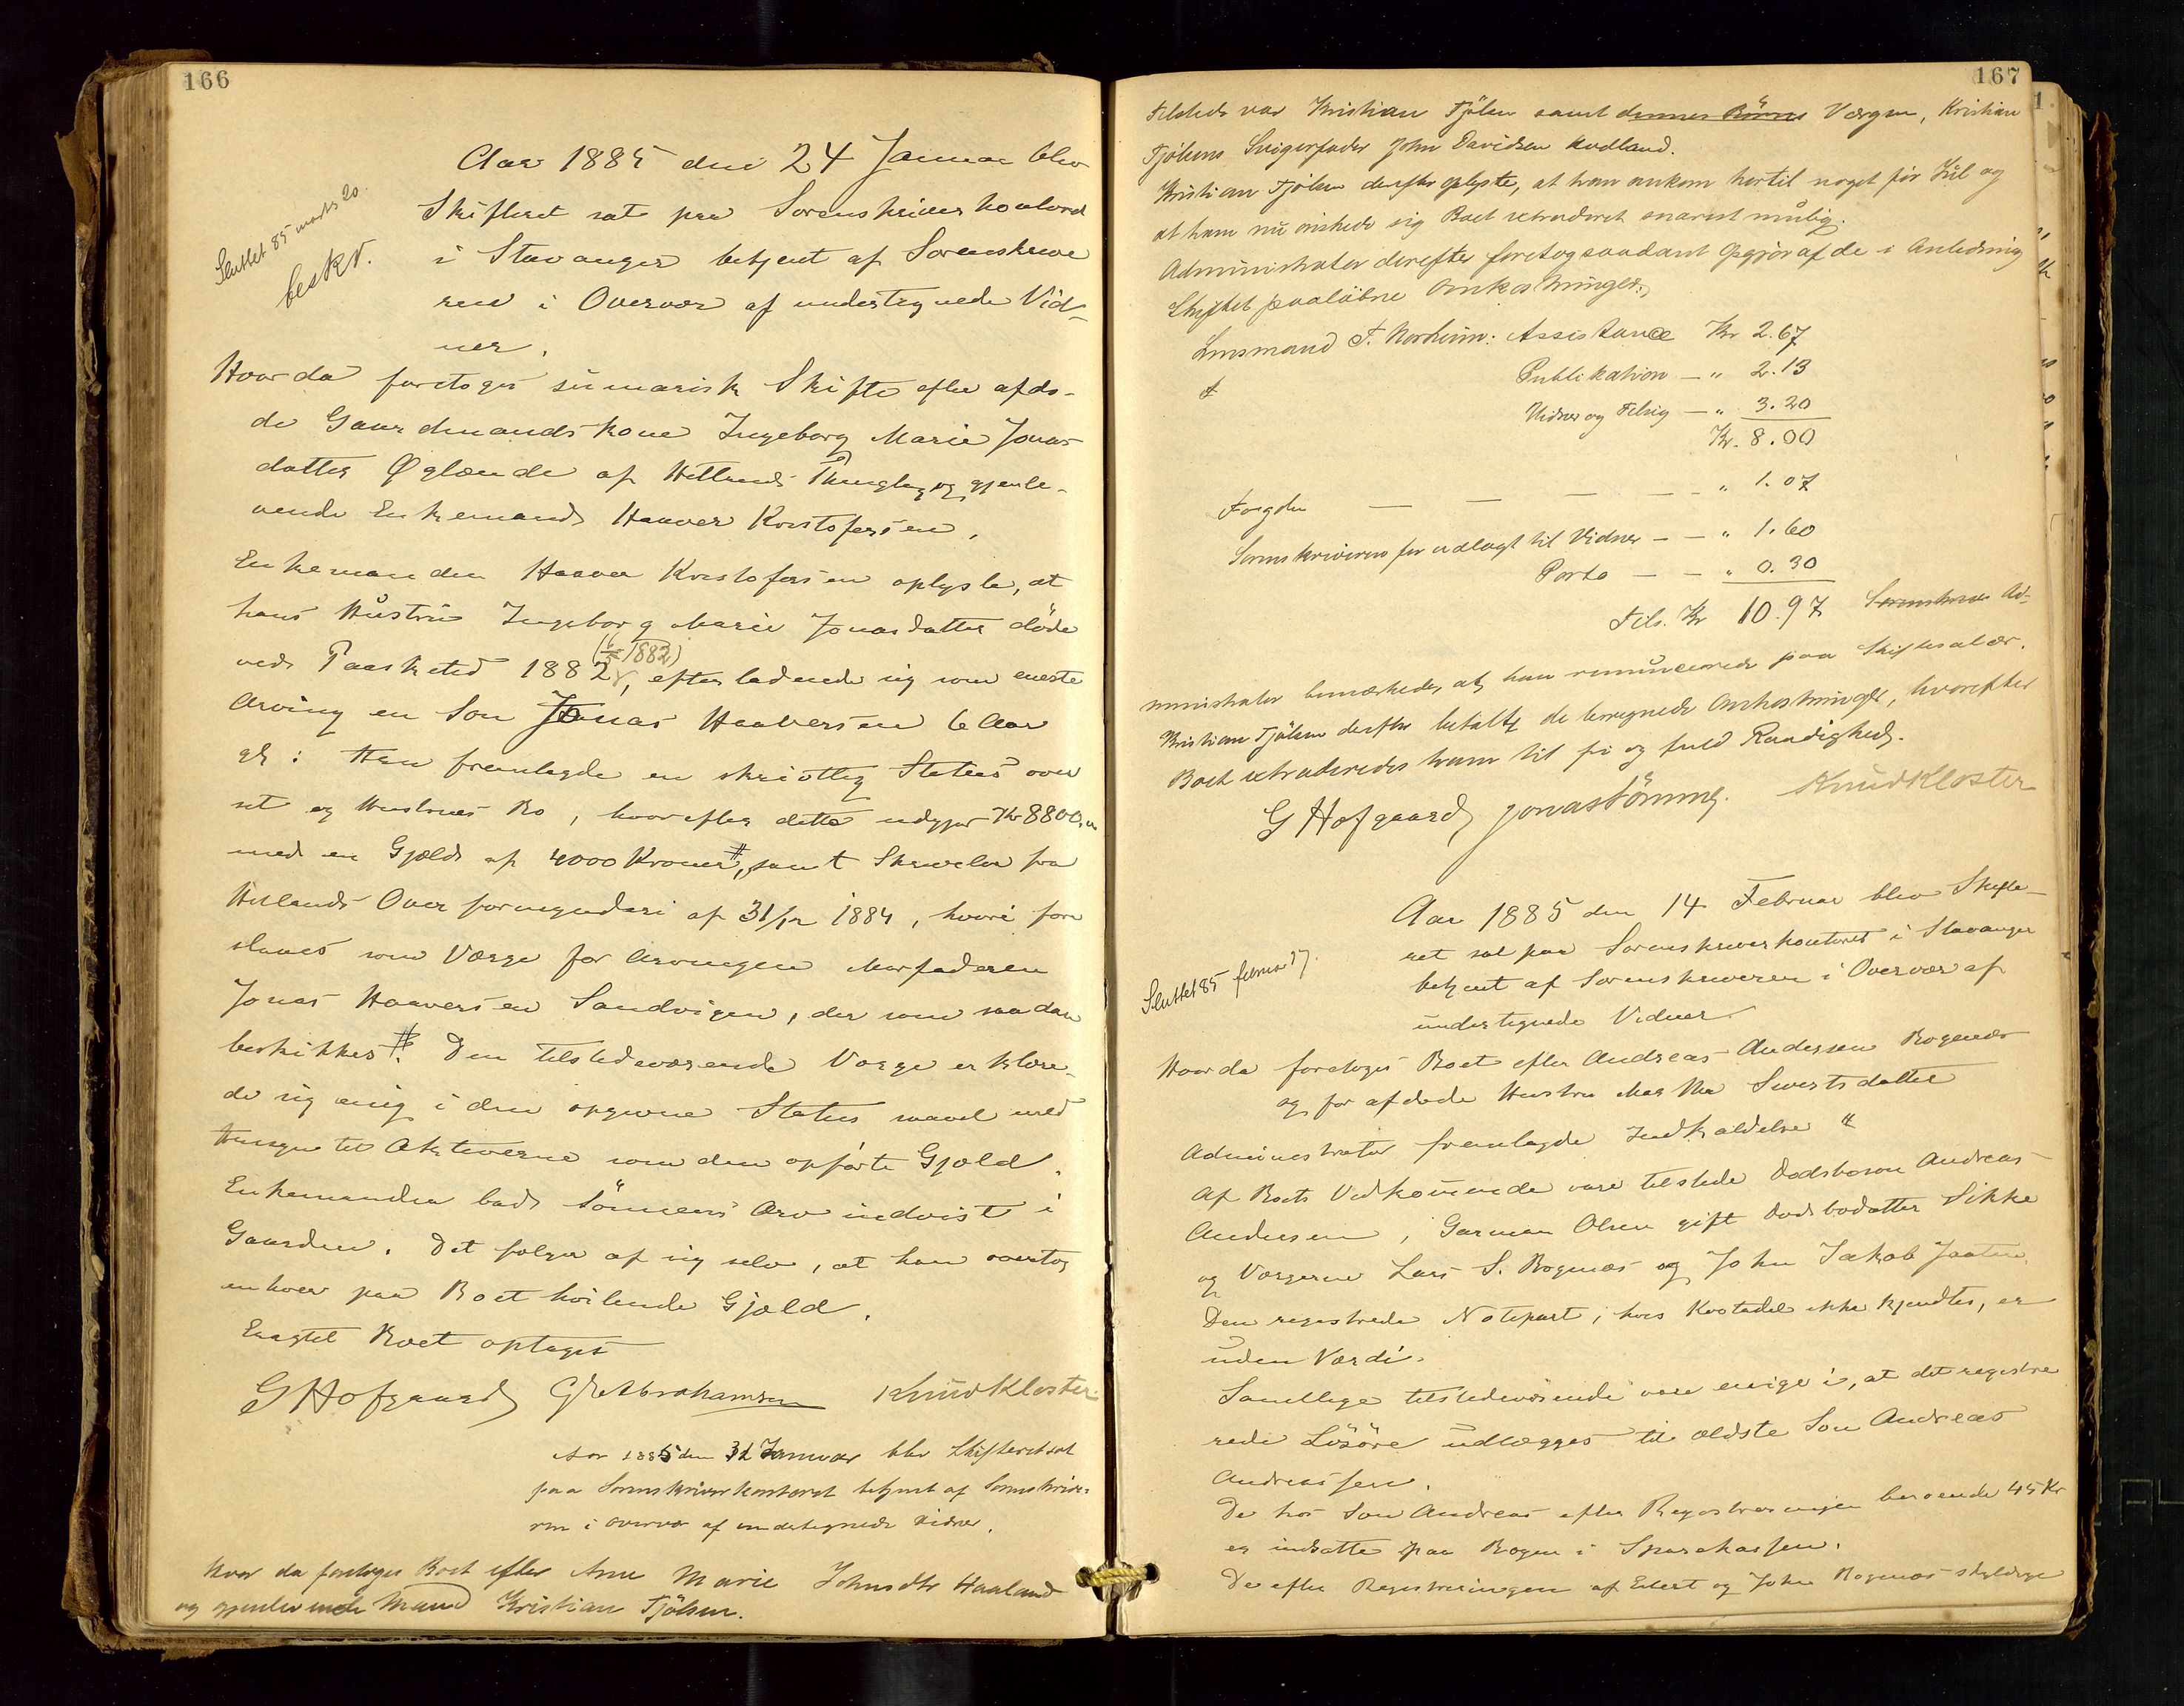 166
Aar 1885 den 24 Januar blev
Skifteret sat paa Sorenskriverkontoret
i Stavanger betjent af Sorenskrive
ren i Overvær af undertegnede Vid-
ner.
Sluttet 85 marts 20.
beskr.
Hvorda foretoges sumarisk Skifte efter afdø-
de Gaardmandskone Ingeborg Marie Jonas
datter Øglænde af Hetlands Thinglag og gjenle-
vende Enkemand Haaver Kristofersen.
Enkemanden Haaver Kristofersen oplyste, at
hans Hustru Ingeborg Marie Jonasdatter döde
ved Paasketid 1882, efterladende sig som eneste
Arving en Son Jonas Haaversen 6 Aar
gl: Han fremlagde en skriftlig Status over
sit og Hustrues Bo, hvorefter dette udgjør Kr 8800,00
med en Gjæld af 4000 Kroner #, samt Skrivelse fra
Hetlands Overformynderi af 31/12 1884, hvori fore
slaaes som Værge for Arvingen Morfaderen
Jonas Haaversen Sandvigen, der som saadan
beskikkes #. Den tilstedeværende Værge erklære-
de sig enig i den opgivne Status saavel med
Hensyn til Aktiverne som den opførte Gjæld.
Enkemanden bad Sönnens Arv indvist i
Gaarden. Det følger af sig selv, at han overtog
enhver paa Boet hvilende Gjæld.
Exagtet Boet optaget
G Hofgaard G R Abrahamsen Knud Kloster
Aar 1885 den 31 Januar blev Skifteret sat
paa Sorenskriverkontoret betjent af Sorenskrive-
ren i Overvær af undertegnede Vidner.
Hvor da foretoges Boet efter Ane Marie Johnsdtr Haaland
og gjenlevende Mand Kristian Tjölsen.
167
Tilstede var Kristian Tjölsen samt dennes Börns Værge, Kristian
Tjölsens Svigerfader John Davidsen Audland.
Kristian Tjölsen derefter oplyste, at han ankom hertil noget før Jul og
at han nu ønskede sig Boet extraderet snarest mulig.
Administrator derefter foretog saadant Opgjör af de i Anledning
Skiftet paaløbne Omkostninger:
Lensmand T. Norheim: Assistance Kr 2.67
Publikation — „ 2.13
Vidner og Tilsig — „ 3.20
Kr. 8.00
Fogden — — — „ 1.07
Sorenskriveren for udlagt til Vidner — „ 1.60
Porto — — „ 0.30
Tils. Kr 10.97 Sorenskriv Ad-
ministrator bemærkede, at han renuncerede paa Skiftesalær.
Kristian Tjölsen derefter betalte de beregnede Omkostninger, hvorefter
Boet extraderedes ham til fri og fuld Raadighed.
G Hofgaard Jonastömmg. Knud Kloster
Aar 1885 den 14 Februar blev Skifte-
ret sat paa Sorenskriverkontoret i Stavanger
betjent af Sorenskriveren i Overvær af
undertegnede Vidner
Sluttet 85 februar 27.
Hvorda foretoges Boet efter Andreas Andersen Rogenæs
og før afdøde Hustru Martha Sivertsdatter
Administrator fremlagde Indkaldelse #
Af Boets Vedkommende vare tilstede Dødsboson Andreas
Andersen, Garman Olsen gift Dødsbodatter Sikke
og Værgerne Lars S. Rogenæs og John Jakob Jaatun.
Den registrerede Notepart, hvis Kostedel ikke kjendtes, er
uden Værdi.
Samtlige tilstedeværende vare enige i, at det registre
rede Lösöre udlægges til ældste Son Andreas
Andreassen.
De hos Son Andreas efter Registreringen beroende 45 Kr
er indsatte paa Bogen i Sparekassen.
De efter Registreringen af Eilert og John Rogenæs skyldige